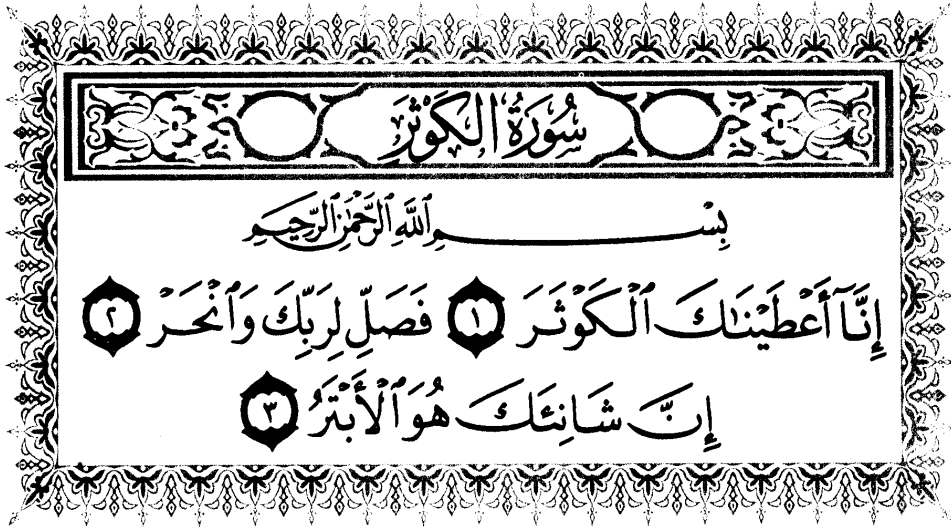 سُورَةُ الكَوْثَرَ
بِسْمِ ٱللَّهِ ٱلرَّحْمَٰنِ ٱلرَّحِيمِ
إِنَّآ أَعْطَيْنَٰكَ ٱلْكَوْثَرَ ١ فَصَلِّ لِرَبِّكَ وَٱنْحَرْ ٢
إِنَّ شَانِئَكَ هُوَ ٱلْأَبْتَرُ ٣